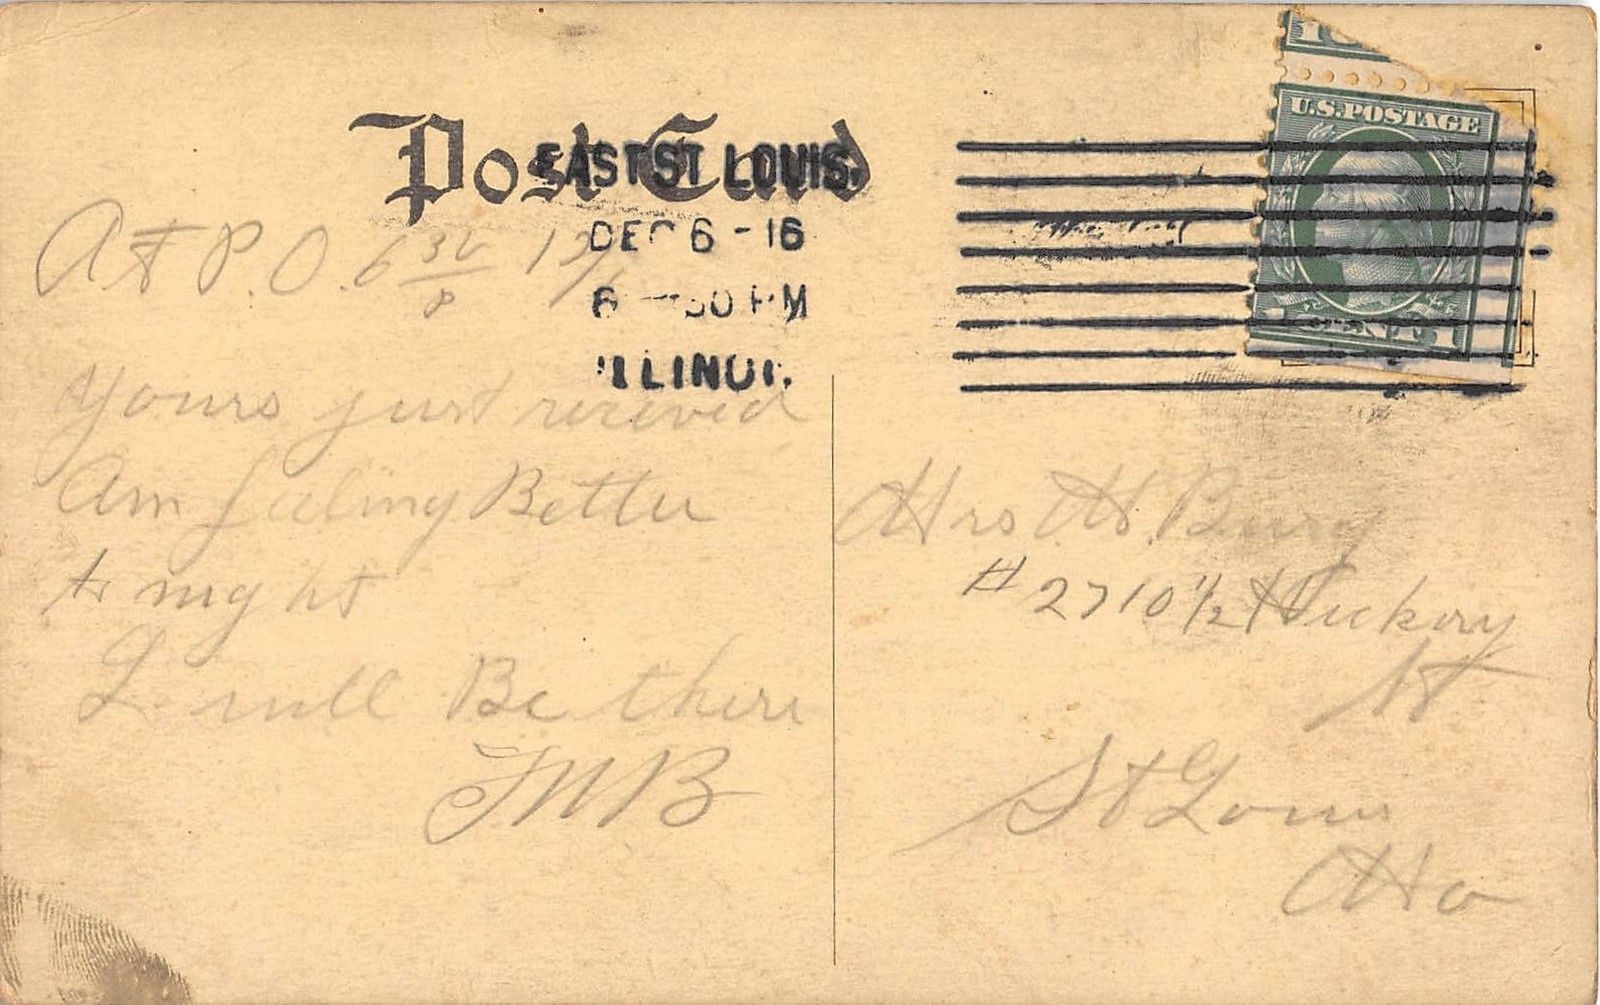 Post Card
EAST ST LOUIS.
DEC 6 - 16
6 - 30 PM
ILLINOI
U.S. POSTAGE
1 CENT 1
At P.O. 6 30 P 12/6
Yours just recieved
Am feeling Better
to night
I will Be there
FMB
Mrs H. Burg
# 2710 1/2 Hickory
St
St Louis
Mo